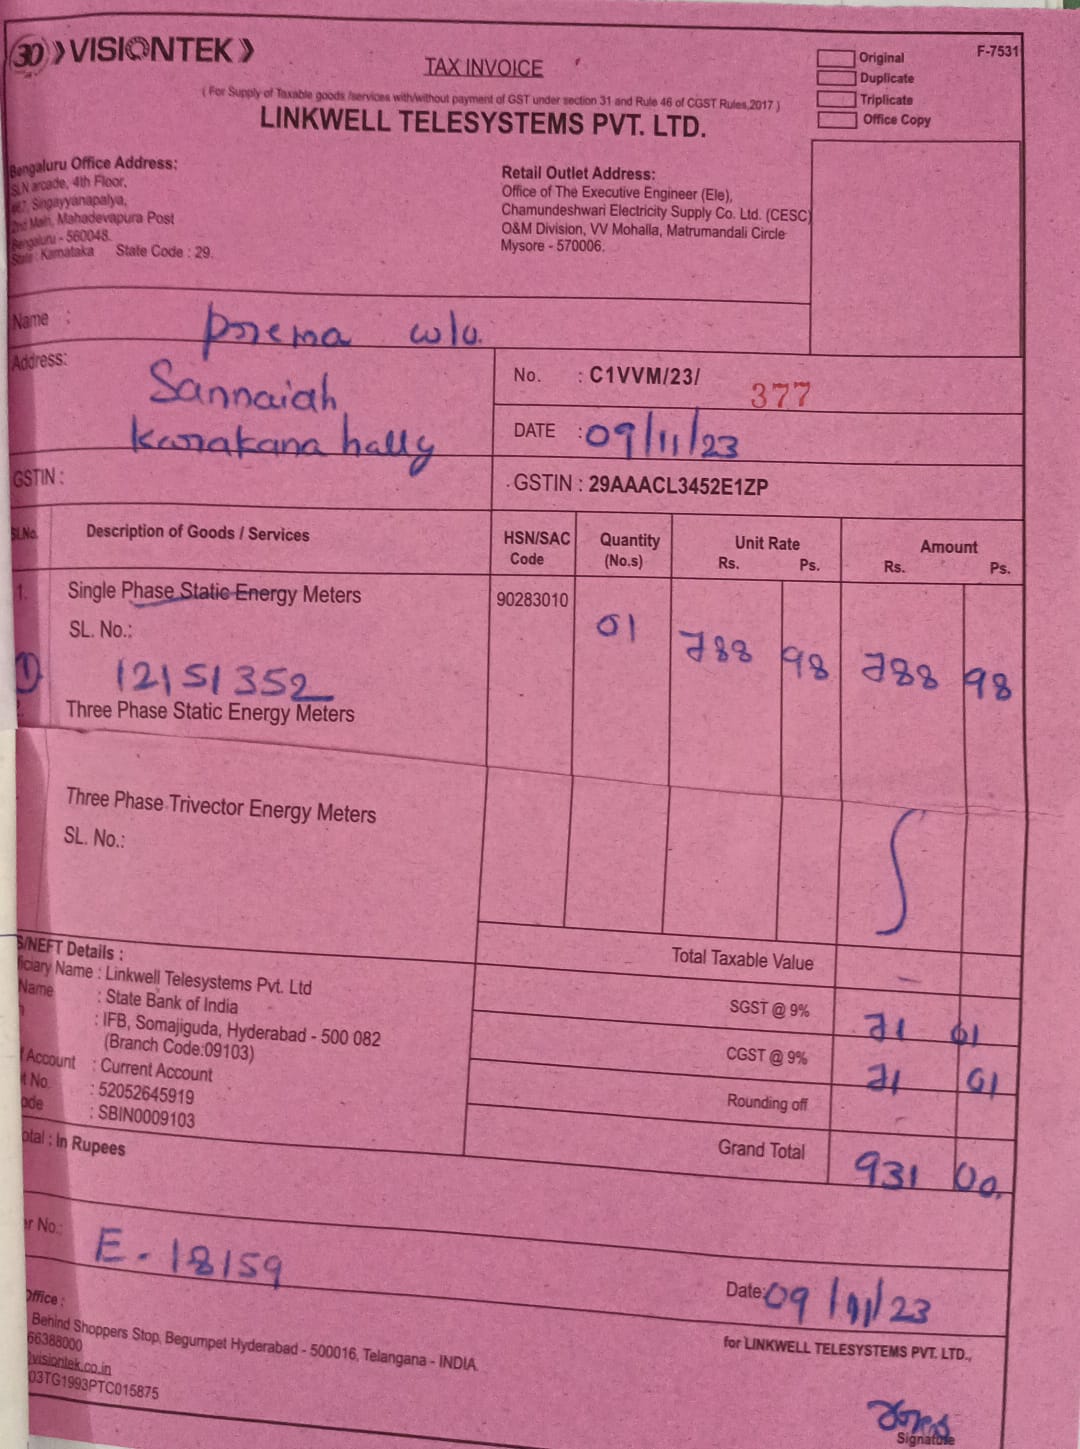 30 VISIONTEK
TAX INVOICE
( For Supply of Taxable goods /services with/without payment of GST under section 31 and Rule 46 of CGST Rules,2017 )
LINKWELL TELESYSTEMS PVT. LTD.
F-7531
Original
Duplicate
Triplicate
Office Copy
Bengaluru Office Address:
SLN arcade, 4th Floor,
Singayyanapalya,
2nd Main, Mahadevapura Post
Bengaluru - 560048.
State : Karnataka State Code : 29.
Retail Outlet Address:
Office of The Executive Engineer (Ele),
Chamundeshwari Electricity Supply Co. Ltd. (CESC)
O&M Division, VV Mohalla, Matrumandali Circle
Mysore - 570006.
Name : Prema w/o.
Address: Sannaiah
Karakanahally
No. : C1VVM/23/ 377
DATE : 09/11/23
GSTIN :
GSTIN : 29AAACL3452E1ZP
Sl.No. Description of Goods / Services HSN/SAC Code Quantity (No.s) Unit Rate Rs. Ps. Amount Rs. Ps.
1. Single Phase Static Energy Meters 90283010 01 788 98 788 98
SL. No.:
① 12151352
2. Three Phase Static Energy Meters
Three Phase Trivector Energy Meters
SL. No.:
Total Taxable Value -
SGST @ 9% 71 01
CGST @ 9% 71 01
Rounding off -
Grand Total 931 00.
S/NEFT Details :
ficiary Name : Linkwell Telesystems Pvt. Ltd
Name : State Bank of India
: IFB, Somajiguda, Hyderabad - 500 082
(Branch Code:09103)
f Account : Current Account
t No. : 52052645919
ode : SBIN0009103
otal : In Rupees
r No.: E - 18159
Date: 09/11/23
Office :
Behind Shoppers Stop, Begumpet Hyderabad - 500016, Telangana - INDIA.
66388000
visiontek.co.in
03TG1993PTC015875
for LINKWELL TELESYSTEMS PVT. LTD.,
Signature